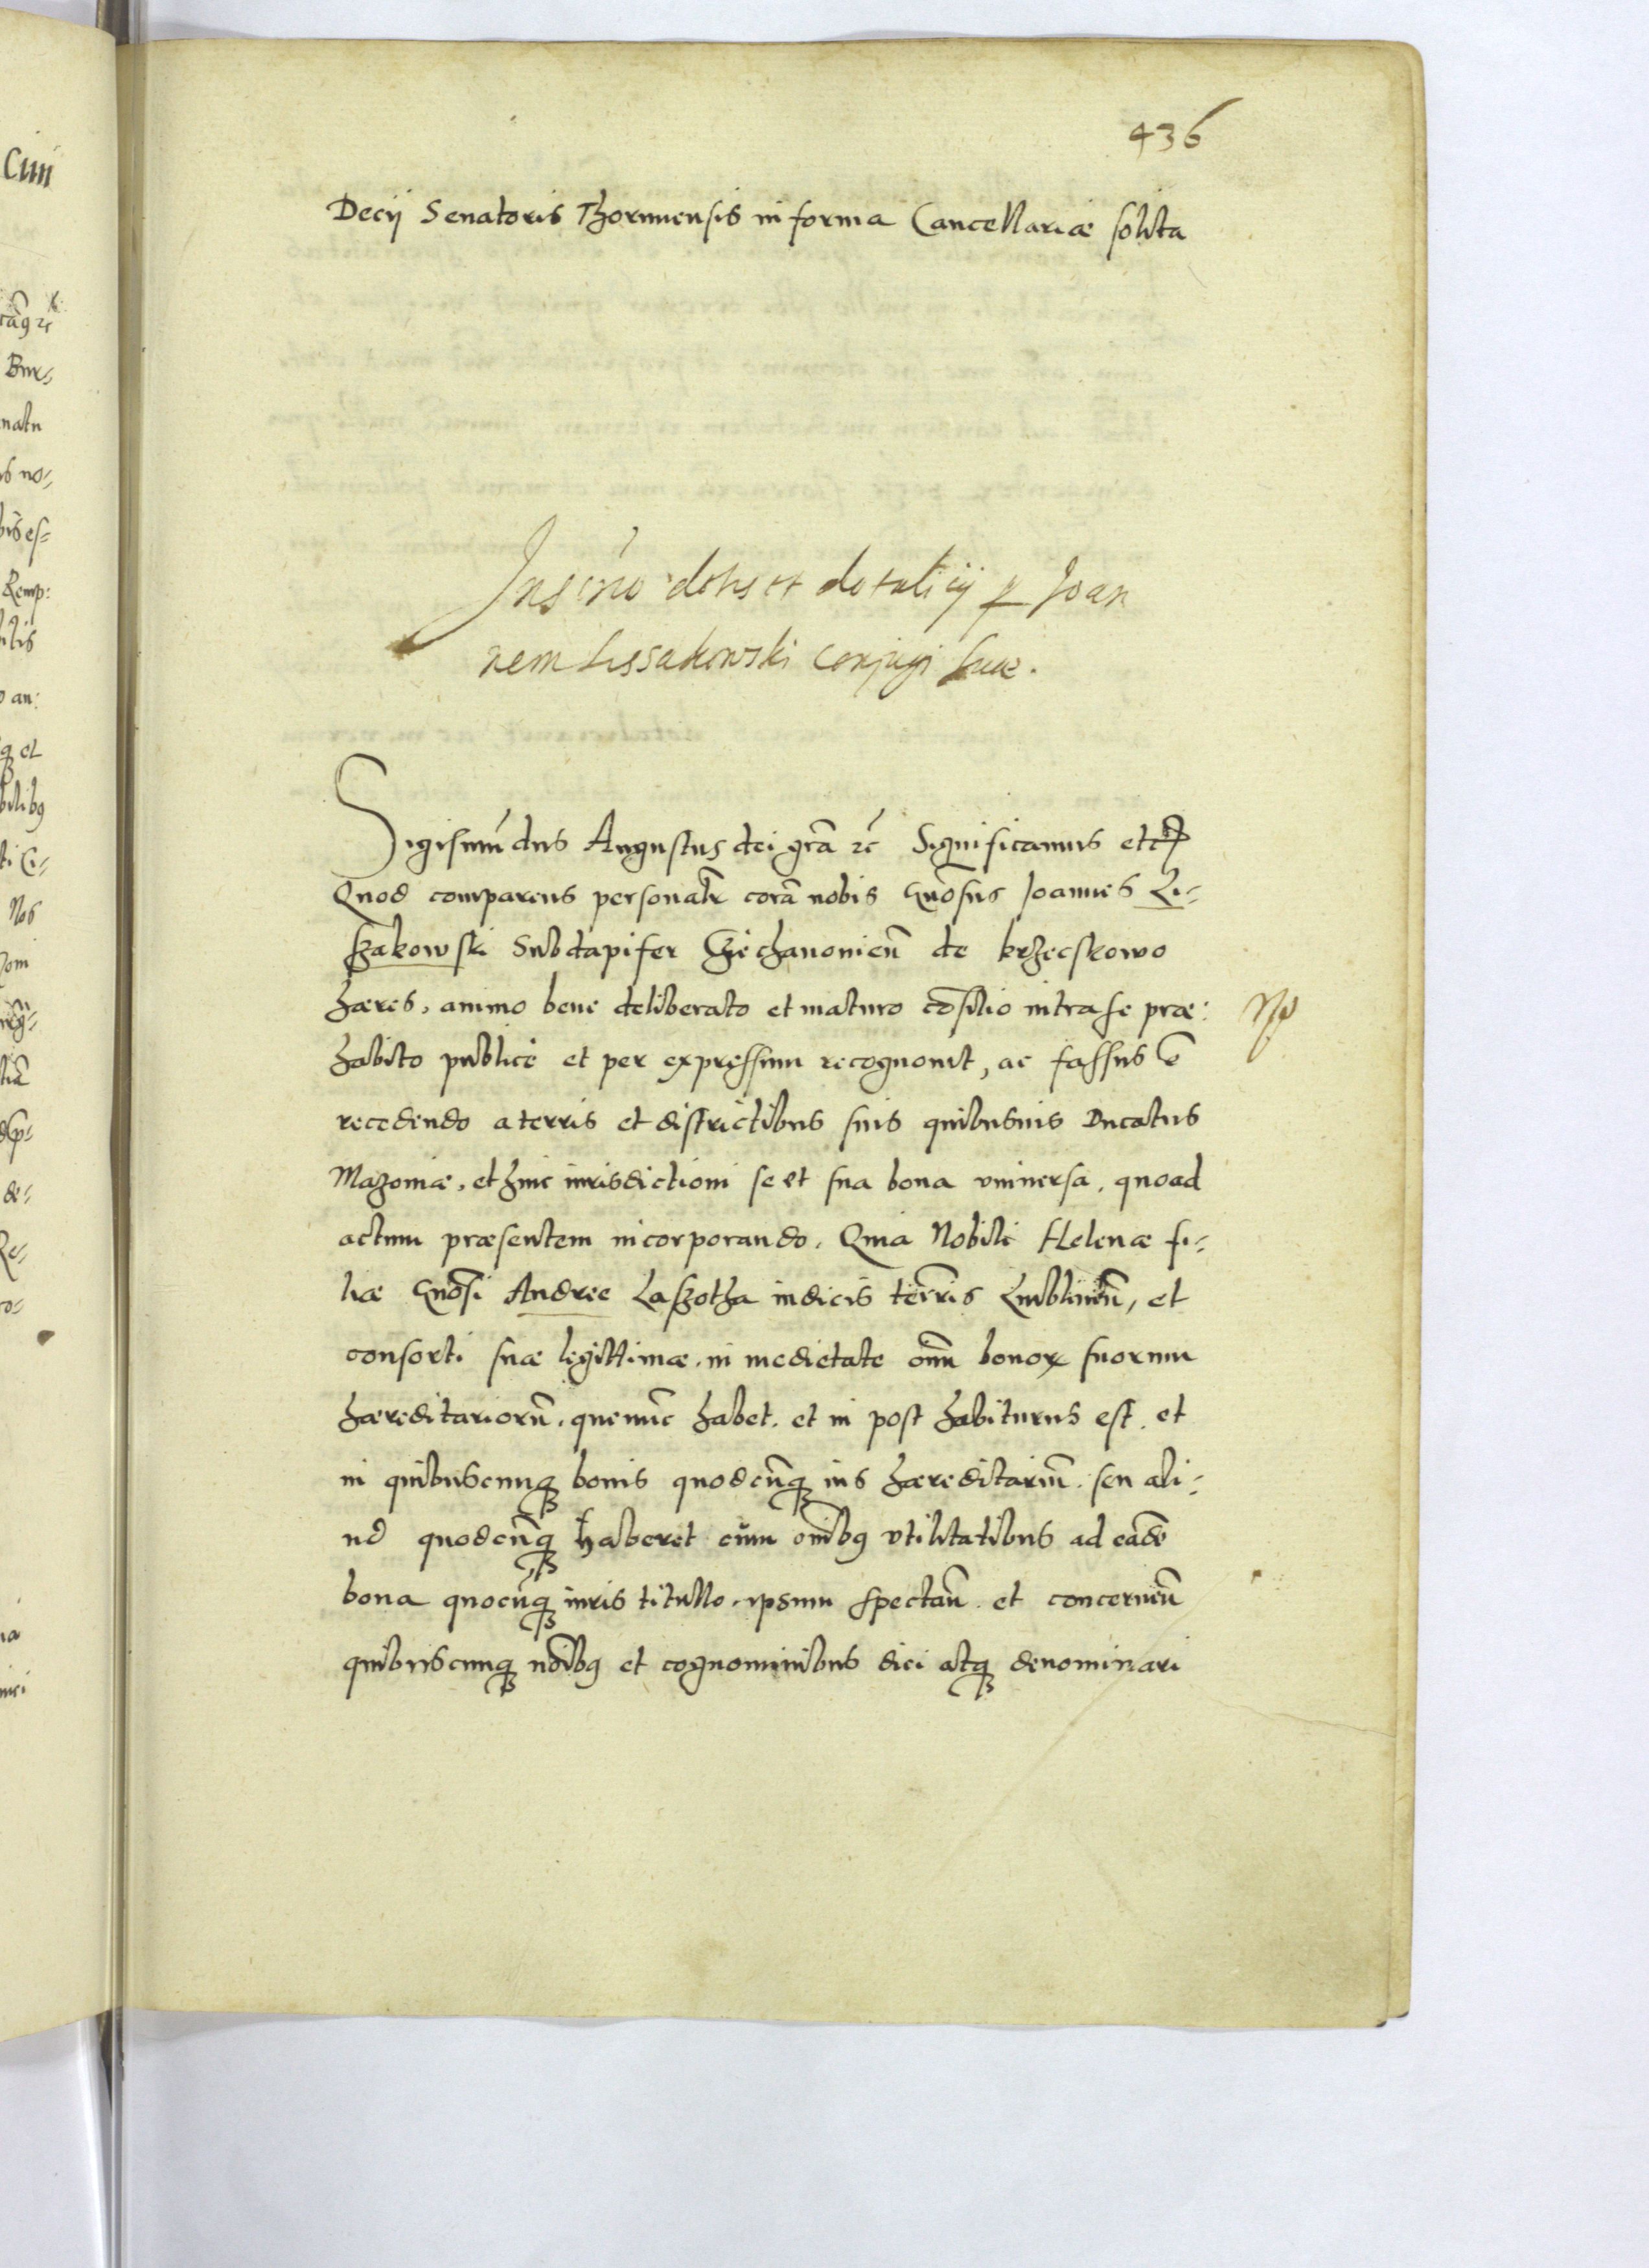 436
Decij Senatoris Thorunensis in forma Cancellariæ solita
Inscrio dotis et dotalicij p Joan
nem Lissakowski conjugi suae.
Sigismūdus Augustus dei grā zc̄ Significamus etc
Quod comparens personalr̄ corā nobis Gn̄osus Joannes Li-
szakowski Subdapifer Cziechanovien̄ de krzecskowo
hæres, animo bene deliberato et maturo cōsilio intra se præ:
habito publicè et per expressum recognovit, ac fassus ē
recedendo a terris et districtibus suis quibusvis Ducatus
Mazoviæ, et huic iurisdictioni se et sua bona universa, quoad
actum præsentem incorporando. Quia Nobili Helenæ fi-
liæ Gn̄osi Andree Laszotha iudicis terrīs Lublinen̄, et
consorti suæ legittimæ, in medietate om̄n bonor suorum
hæreditariorū, que nunc habet, et in post habiturus est, et
in quibuscunq bonis quodcūq ius hæreditariū seu ali-
ud quodcūq haberet cum om̄ibus utilitatibus ad eadē
bona quocūq iuris titullo ipsum spectan̄ et concernen̄
quibuscunq nōibus et cognominibus dici atq denominari